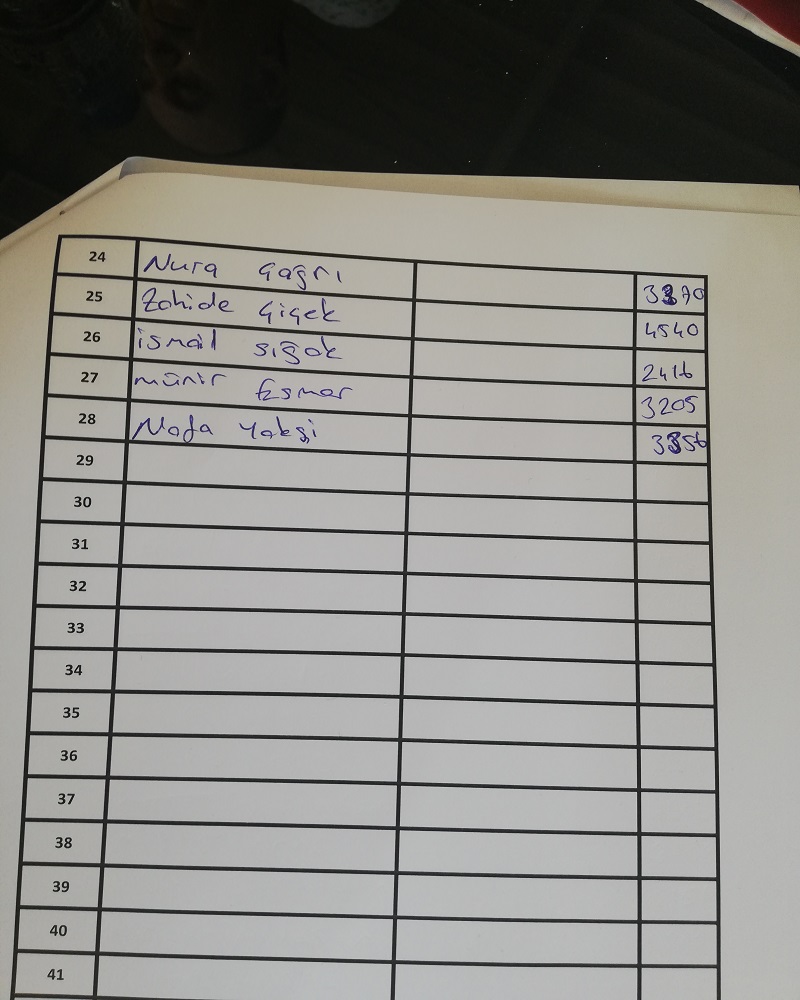 24 Nura Çağrı 3370
25 Zahide Çiçek 4540
26 ismail sığak 2416
27 münir Esmer 3205
28 Nafa Yakşi 3356
29
30
31
32
33
34
35
36
37
38
39
40
41